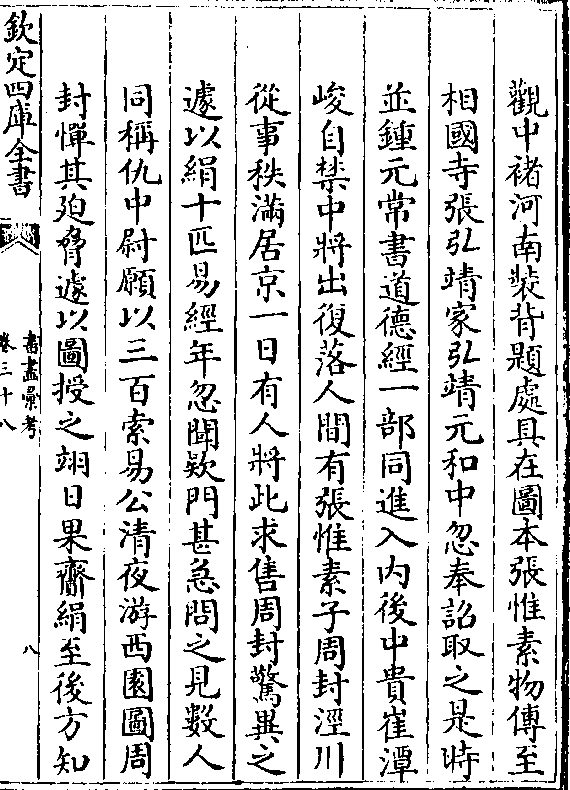 觀中褚河南裝背題處具在圖本張惟素物傳至
相國寺張弘靖家弘靖元和中忽奉詔取之是時
並鍾元常書道德經一部同進入内後中貴崔潭
峻自禁中將出復落人間有張惟素子周封涇川
從事秩滿居京一日有人將此求售周封驚異之
遽以絹十匹易經年忽聞欵門甚急問之見數人
同稱仇中尉願以三百索易公清夜游西園圖周
封憚其廹脅遽以圖授之翊日果齎絹至後方知
欽定四庫全書
書畫彙考
卷三十八
八